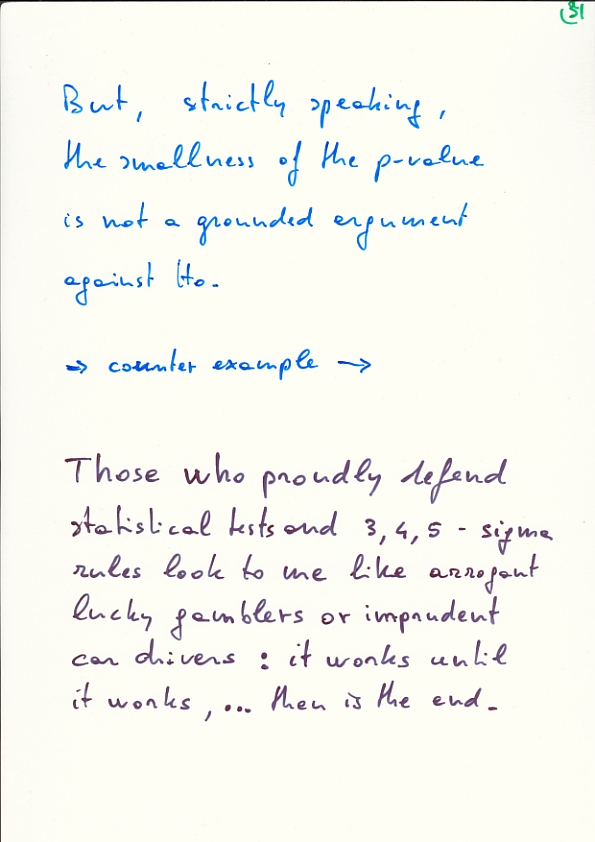 51
But, strictly speaking,
the smallness of the p-value
is not a grounded argument
against Ho.
⇒ counter example →
Those who proudly defend
statistical tests and 3, 4, 5 - sigma
rules look to me like arrogant
lucky gamblers or imprudent
car drivers : it works until
it works, ... then is the end.